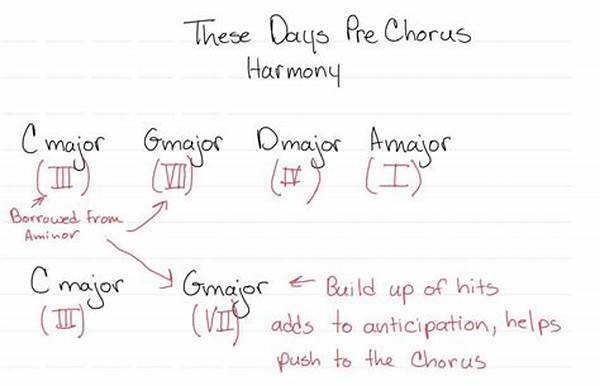 These Days PreChorus
Harmony
Cmajor Gmajor Dmajor Amajor
(III) (VII) (IV) (I)
Borrowed from
Aminor
Cmajor Gmajor ← Build up of hits
(III) (VII) adds to anticipation, helps
push to the Chorus